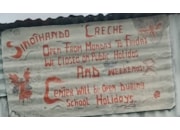 SINOTHANDO CRECHE
OPEN FROM MONDAY TO FRIDAY
WE CLOSE ON PUBLIC HOLIDAYS
AND
CENTER WILL BE OPEN DURING
SCHOOL HOLIDAYS.